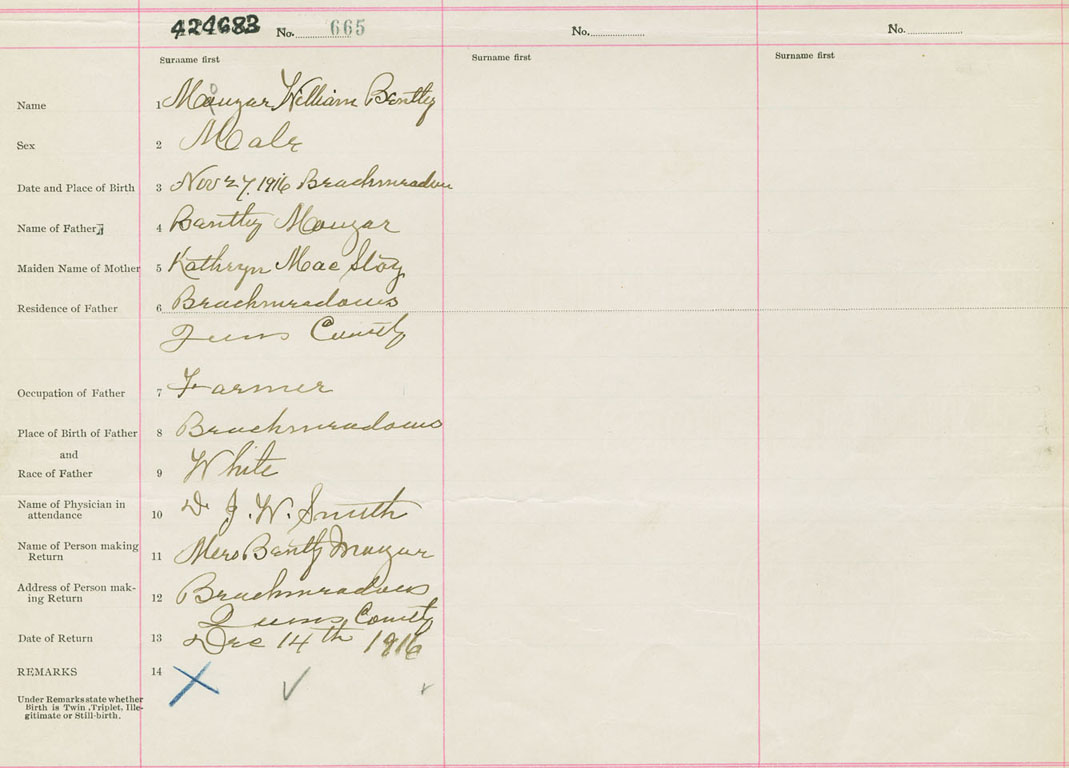 424683 No. 665 No. No.
Surname first Surname first Surname first
Name 1 Mouzar William Bentley
Sex 2 Male
Date and Place of Birth 3 Nov 27, 1916 Beachmeadows
Name of Father 4 Bentley Mouzar
Maiden Name of Mother 5 Kathryn Mac
Residence of Father 6 Beachmeadows
Queens County
Occupation of Father 7 Farmer
Place of Birth of Father 8 Beachmeadows
and
Race of Father 9 White
Name of Physician in
attendance 10 Dr J. W. Smith
Name of Person making
Return 11 Mrs Bently Mouzar
Address of Person mak-
ing Return 12 Beachmeadows
Queens County
Date of Return 13 Dec 14th 1916
REMARKS 14
Under Remarks state whether
Birth is Twin, Triplet, Ille-
gitimate or Still-birth.